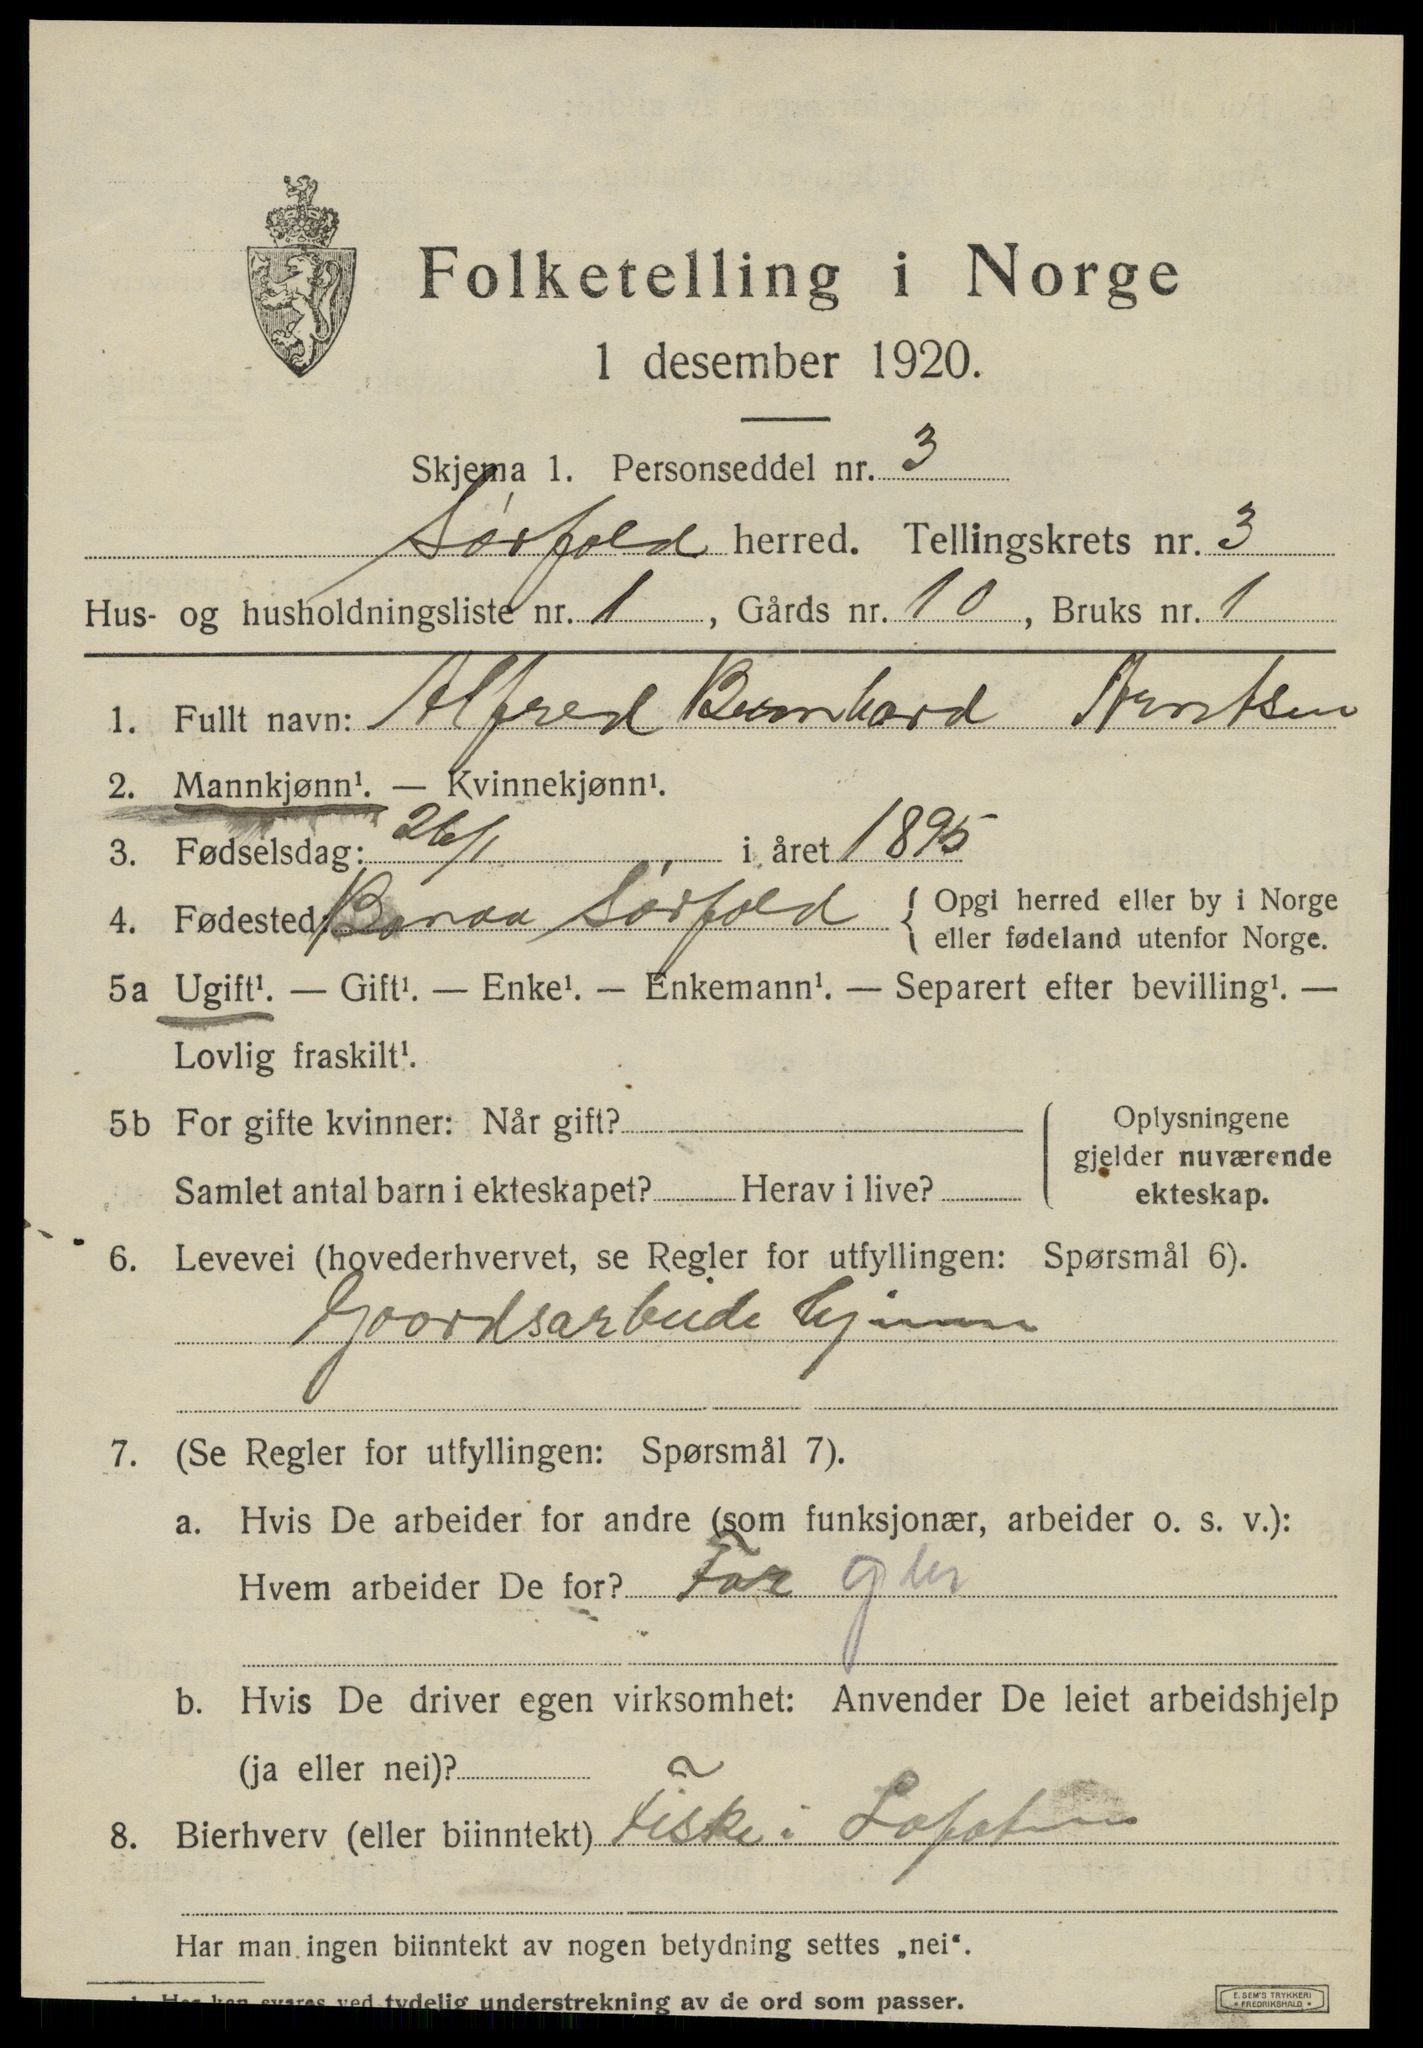 Folketelling i Norge
1 desember 1920.
Skjema 1. Personseddel nr. 3
Sørfold herred. Tellingskrets nr. 3
Hus- og husholdningsliste nr. 1, Gårds nr. 10, Bruks nr. 1
1. Fullt navn: Alfred Bernhard Arntsen
2. Mannkjønn¹. — Kvinnekjønn¹.
3. Fødselsdag: 26/1 i året 1895
4. Fødested: Bonaa Sørfold { Opgi herred eller by i Norge
eller fødeland utenfor Norge.
5a Ugift¹. — Gift¹. — Enke¹. — Enkemann¹. — Separert efter bevilling¹. —
Lovlig fraskilt¹.
5b For gifte kvinner: Når gift?
Samlet antal barn i ekteskapet? Herav i live?
Oplysningene
gjelder nuværende
ekteskap.
6. Levevei (hovederhvervet, se Regler for utfyllingen: Spørsmål 6).
Goordsarbeide hjemme
7. (Se Regler for utfyllingen: Spørsmål 7).
a. Hvis De arbeider for andre (som funksjonær, arbeider o. s. v.):
Hvem arbeider De for? Far
b. Hvis De driver egen virksomhet: Anvender De leiet arbeidshjelp
(ja eller nei)?
8. Bierhverv (eller biinntekt) Fiske i Lofoten
Har man ingen biinntekt av nogen betydning settes „nei“.
¹ Her kan svares ved tydelig understrekning av de ord som passer.
E. SEM'S TRYKKERI
* FREDRIKSHALD *